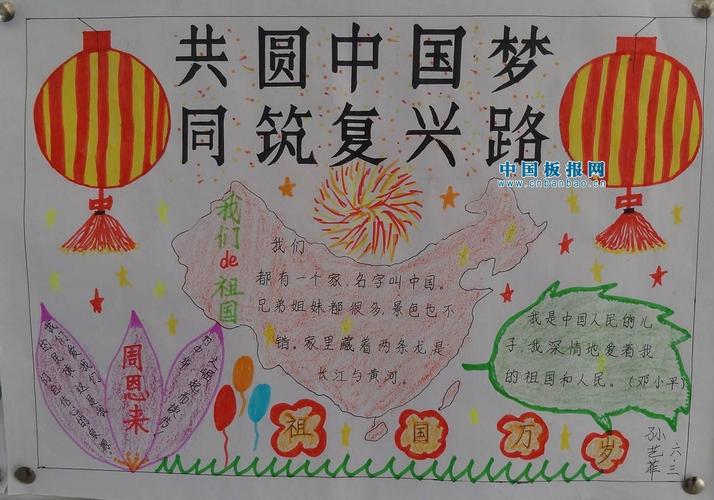 共圆中国梦
同筑复兴路
中国板报网
www.cnbanbao.cn
我们de祖国
我们
都有一个家,名字叫中国。
兄弟姐妹都很多,景色也不
错。家里藏着两条龙是
长江与黄河。
我是中国人民的儿
子,我深情地爱着我
的祖国和人民。(邓小平)
周恩来
祖国万岁
六.三
孙艺菲